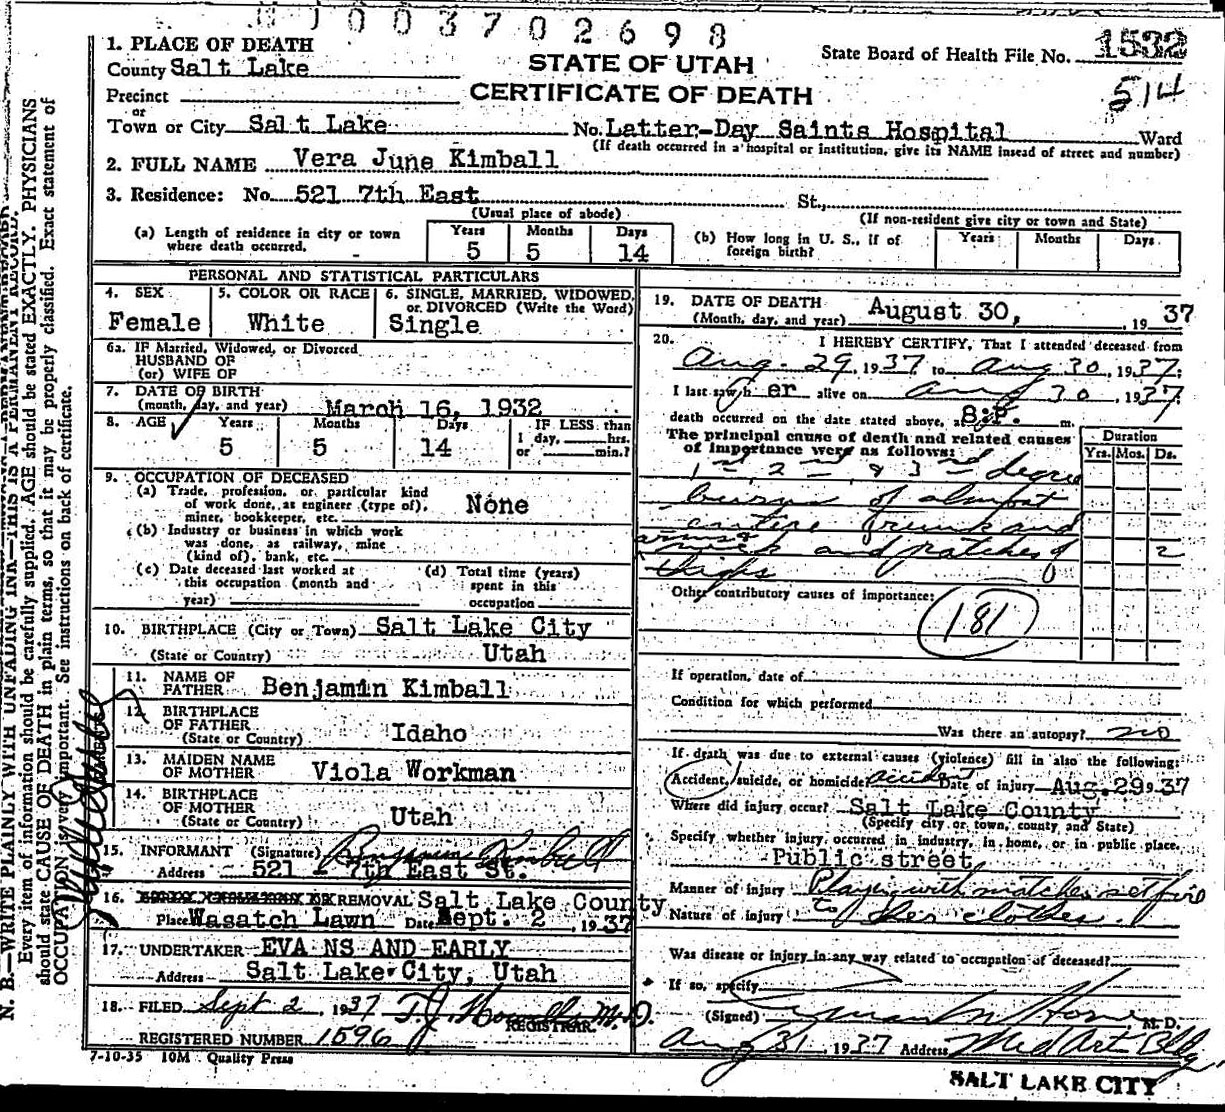 1003702698
1. PLACE OF DEATH
County Salt Lake
STATE OF UTAH
CERTIFICATE OF DEATH
State Board of Health File No. 1532
514
Precinct
or
Town or City Salt Lake No. Latter-Day Saints Hospital Ward
(If death occurred in a hospital or institution, give its NAME insead of street and number)
2. FULL NAME Vera June Kimball
3. Residence: No. 521 7th East St.,
(Usual place of abode) (If non-resident give city or town and State)
(a) Length of residence in city or town where death occurred.
Years Months Days
5 5 14
(b) How long in U. S., if of foreign birth?
Years Months Days
PERSONAL AND STATISTICAL PARTICULARS
4. SEX
Female
5. COLOR OR RACE
White
6. SINGLE, MARRIED, WIDOWED, or DIVORCED (Write the Word)
Single
6a. IF Married, Widowed, or Divorced
HUSBAND OF
(or) WIFE OF
7. DATE OF BIRTH
(month, day, and year) March 16, 1932
8. AGE Years Months Days IF LESS than
5 5 14 1 day, hrs.
or min.?
9. OCCUPATION OF DECEASED
(a) Trade, profession, or particular kind
of work done, as engineer (type of), None
miner, bookkeeper, etc.
(b) Industry or business in which work
was done, as railway, mine
(kind of), bank, etc.
(c) Date deceased last worked at
this occupation (month and
year)
(d) Total time (years)
spent in this
occupation
10. BIRTHPLACE (City or Town) Salt Lake City
(State or Country) Utah
11. NAME OF
FATHER Benjamin Kimball
12. BIRTHPLACE
OF FATHER
(State or Country) Idaho
13. MAIDEN NAME
OF MOTHER Viola Workman
14. BIRTHPLACE
OF MOTHER
(State or Country) Utah
15. INFORMANT (Signature) Benjamin Kimball
Address 521 - 7th East St.
16. REMOVAL Salt Lake County
Place Wasatch Lawn Date Sept. 2, 1937
17. UNDERTAKER EVANS AND EARLY
Address Salt Lake City, Utah
18. FILED Sept 2, 1937 T.J. Howells M.D.
REGISTRAR.
REGISTERED NUMBER 1596
7-10-35 10M Quality Press
19. DATE OF DEATH August 30, 1937
(Month, day, and year)
20. I HEREBY CERTIFY, That I attended deceased from
Aug. 29, 1937 to Aug 30, 1937;
I last saw her alive on Aug 30, 1937
death occurred on the date stated above, at 8:P. m.
The principal cause of death and related causes
of importance were as follows:
Duration
Yrs. Mos. Ds.
1st, 2nd, & 3rd degree
burns of almost
entire trunk and
arms
neck and patches of 2
thighs
Other contributory causes of importance:
181
If operation, date of
Condition for which performed
Was there an autopsy? no
If death was due to external causes (violence) fill in also the following:
Accident, suicide, or homicide accident Date of injury Aug. 29 937
Where did injury occur? Salt Lake County
(Specify city or town, county and State)
Specify whether injury occurred in industry, in home, or in public place.
Public street
Manner of injury Playing with matches set fire
Nature of injury to her clothes.
Was disease or injury in any way related to occupation of deceased?
If so, specify
(Signed) M.D.
Aug 31, 1937 Address Med Art Bldg
SALT LAKE CITY
N. B.—WRITE PLAINLY WITH UNFADING INK—THIS IS A PERMANENT RECORD.
Every item of information should be carefully supplied. AGE should be stated EXACTLY. PHYSICIANS
should state CAUSE OF DEATH in plain terms, so that it may be properly classified. Exact statement of
OCCUPATION is very important. See instructions on back of certificate.